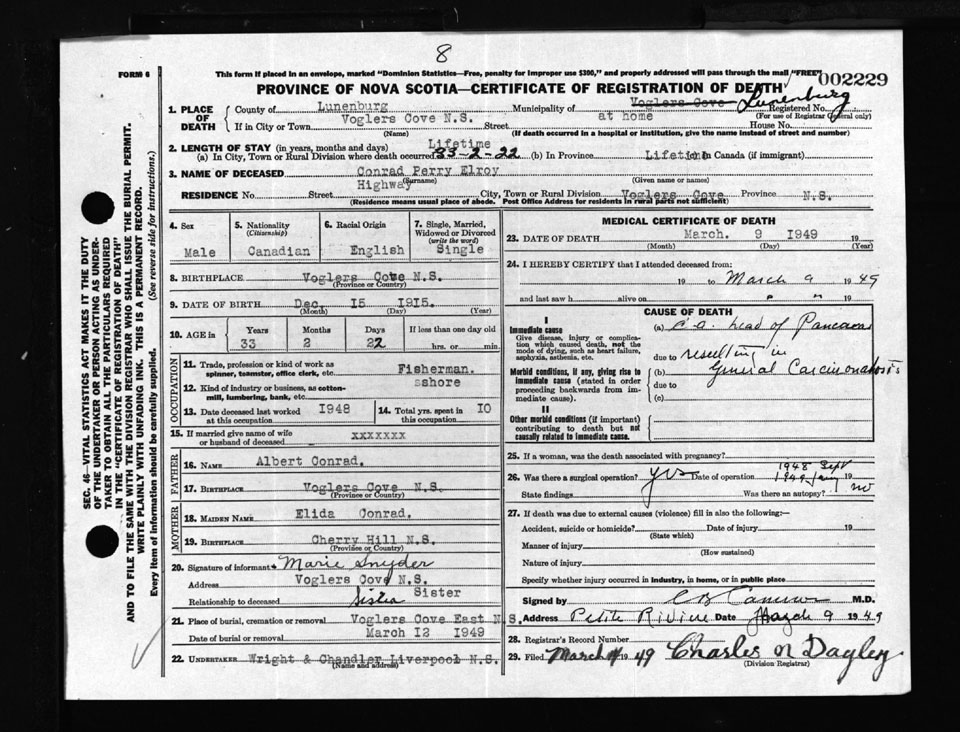 8
FORM 6
This form if placed in an envelope, marked "Dominion Statistics—Free, penalty for improper use $300," and properly addressed will pass through the mail "FREE"
002229
PROVINCE OF NOVA SCOTIA—CERTIFICATE OF REGISTRATION OF DEATH
1. PLACE OF DEATH
County of Lunenburg Municipality of Voglers Cove Lunenburg Registered No.
(For use of Registrar General only)
If in City or Town Voglers Cove N.S. Street at home House No.
(Name) (If death occurred in a hospital or institution, give the name instead of street and number)
2. LENGTH OF STAY (in years, months and days) Lifetime
(a) In City, Town or Rural Division where death occurred 33-2-22 (b) In Province Lifetime In Canada (if immigrant)
3. NAME OF DECEASED Conrad Perry Elroy
(Surname) (Given name or names)
RESIDENCE No. Street Highway City, Town or Rural Division Voglers Cove Province N.S.
(Residence means usual place of abode. Post Office Address for residents in rural parts not sufficient)
4. Sex Male
5. Nationality (Citizenship) Canadian
6. Racial Origin English
7. Single, Married, Widowed or Divorced (write the word) Single
8. BIRTHPLACE Voglers Cove N.S.
(Province or Country)
9. DATE OF BIRTH Dec. 15 1915.
(Month) (Day) (Year)
10. AGE in Years 33 Months 2 Days 22 If less than one day old hrs. or min.
OCCUPATION
11. Trade, profession or kind of work as spinner, teamster, office clerk, etc. Fisherman.
12. Kind of industry or business, as cotton-mill, lumbering, bank, etc. sshore
13. Date deceased last worked at this occupation 1948
14. Total yrs. spent in this occupation 10
15. If married give name of wife or husband of deceased xxxxxxx
FATHER
16. NAME Albert Conrad.
17. BIRTHPLACE Voglers Cove N.S.
(Province or Country)
MOTHER
18. MAIDEN NAME Elida Conrad.
19. BIRTHPLACE Cherry Hill N.S.
(Province or Country)
20. Signature of informant Marie Snyder
Address Voglers Cove N.S.
Relationship to deceased Sister Sister
21. Place of burial, cremation or removal Voglers Cove East N.S.
Date of burial or removal March 12 1949
22. UNDERTAKER Wright & Chandler Liverpool N.S.
(Name and address)
MEDICAL CERTIFICATE OF DEATH
23. DATE OF DEATH March. 9 1949 19
(Month) (Day) (Year)
24. I HEREBY CERTIFY that I attended deceased from:
19 to March 9 1949
and last saw h alive on " " 19
CAUSE OF DEATH
I
Immediate cause
Give disease, injury or complication which caused death, not the mode of dying, such as heart failure, asphyxia, asthenia, etc.
(a) C.a. head of Pancreas
due to resulting in
Morbid conditions, if any, giving rise to immediate cause (stated in order proceeding backwards from immediate cause).
(b) General Carcinomatosis
due to
(c)
II
Other morbid conditions (if important) contributing to death but not causally related to immediate cause.
25. If a woman, was the death associated with pregnancy?
26. Was there a surgical operation? yes Date of operation 1948 Sept 1949 Jany 19
State findings Was there an autopsy? no
27. If death was due to external causes (violence) fill in also the following:—
Accident, suicide or homicide? Date of injury 19
(State which)
Manner of injury
(How sustained)
Nature of injury
Specify whether injury occurred in industry, in home, or in public place
Signed by M.D.
Address Petite Riviere March 9 1949
28. Registrar's Record Number
29. Filed March 1949 Charles N Dagley
(Division Registrar)
SEC. 46—VITAL STATISTICS ACT MAKES IT THE DUTY
OF THE UNDERTAKER OR PERSON ACTING AS UNDER-
TAKER TO OBTAIN ALL THE PARTICULARS REQUIRED
IN THE "CERTIFICATE OF REGISTRATION OF DEATH"
AND TO FILE THE SAME WITH THE DIVISION REGISTRAR WHO SHALL ISSUE THE BURIAL PERMIT.
WRITE PLAINLY WITH UNFADING INK. THIS IS A PERMANENT RECORD.
Every item of information should be carefully supplied. (See reverse side for instructions.)